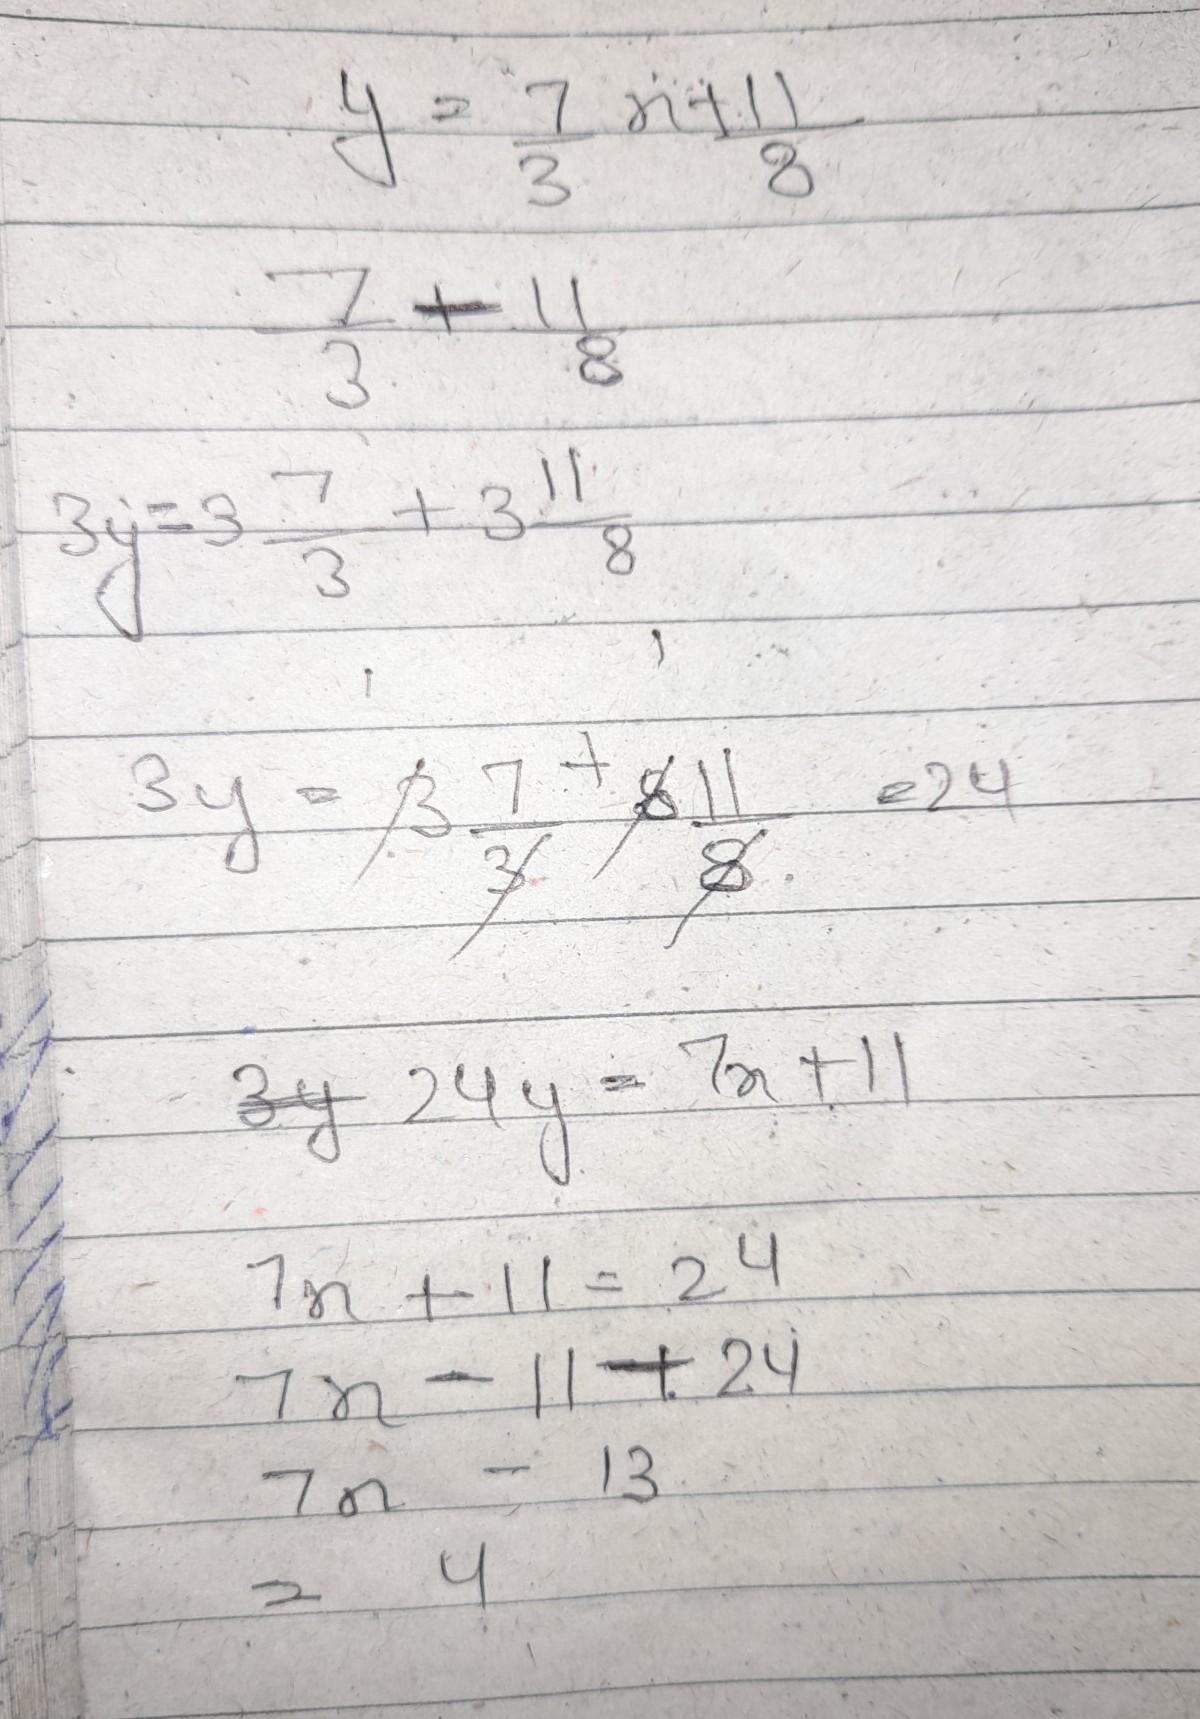 y = 7/3 n + 11/8
7/3 + 11/8
3y = 3 7/3 + 3 11/8
3y = 3 7/3 + 8 11/8 = 24
3y 24y = 7n + 11
7n + 11 = 24
7n - 11 + 24
7n - 13
= 4